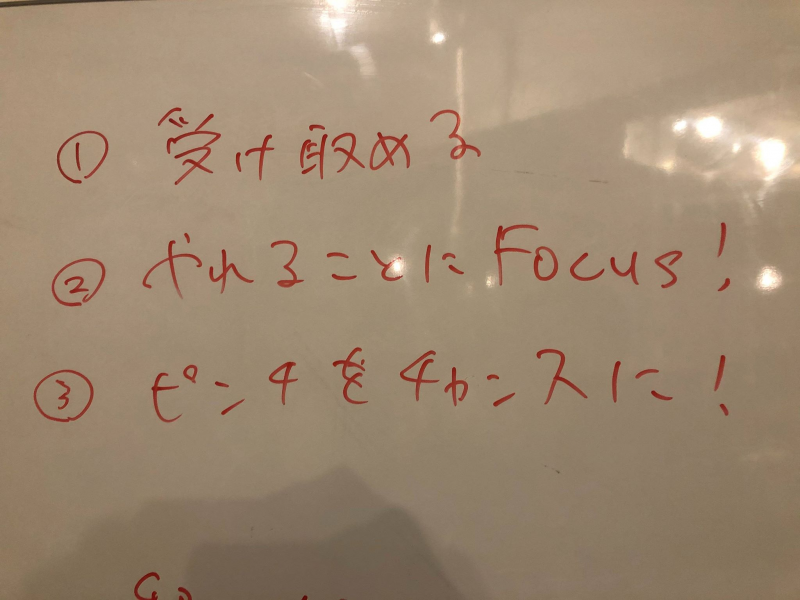 ① 受け取める
② やれることにFocus!
③ ピンチをチャンスに!